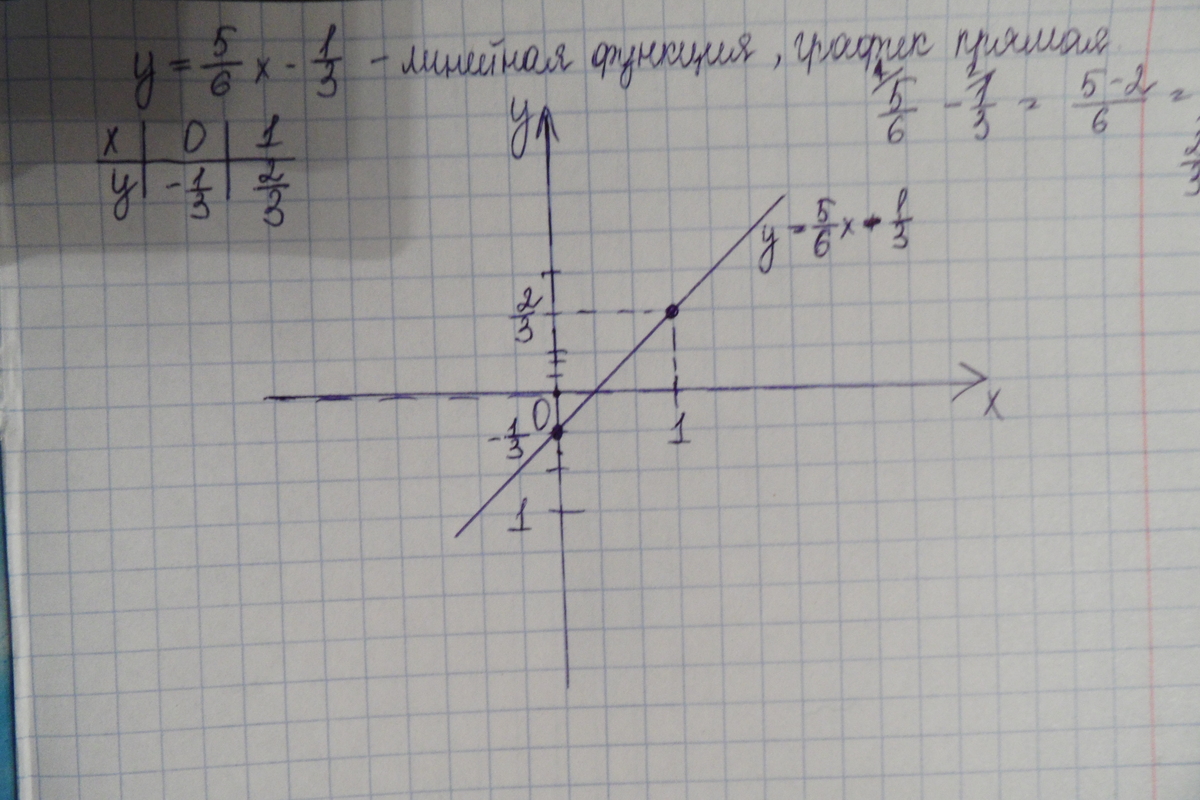 y = 5/6 x - 1/3 - линейная функция, график прямая
5/6 - 1/3 = 5-2/6 =
2/3
x | 0 | 1
y | -1/3 | 2/3
y
y = 5/6 x - 1/3
2/3
0
x
-1/3
1
1